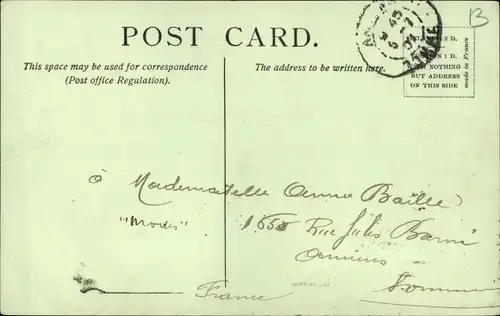 POST CARD.
This space may be used for correspondence
(Post office Regulation).
The address to be written here.
D.
1 D.
NOTHING
BUT ADDRESS
ON THIS SIDE
made in France
B
à Mademoiselle Anna Baille
"Modes"
165 Rue Jules Barni
Amiens
Somme
France